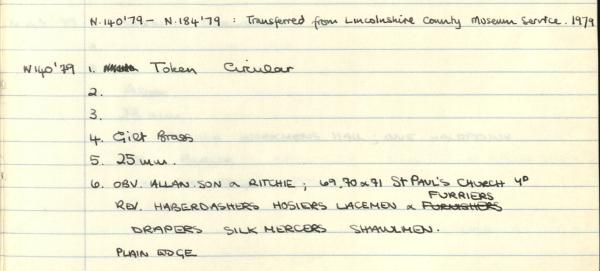 N.140'79 – N.184'79 : Transferred from Lincolnshire County Museum Service. 1979
N140'79 1. Token Circular
2.
3.
4. Gilt Brass
5. 25 mm.
6. OBV. ALLAN. SON & RITCHIE ; 69.70 & 71 St PAUL'S CHURCH YD
FURRIERS
REV. HABERDASHERS HOSIERS LACEMEN & FURNISHERS
DRAPERS SILK MERCERS SHAWLMEN.
PLAIN EDGE